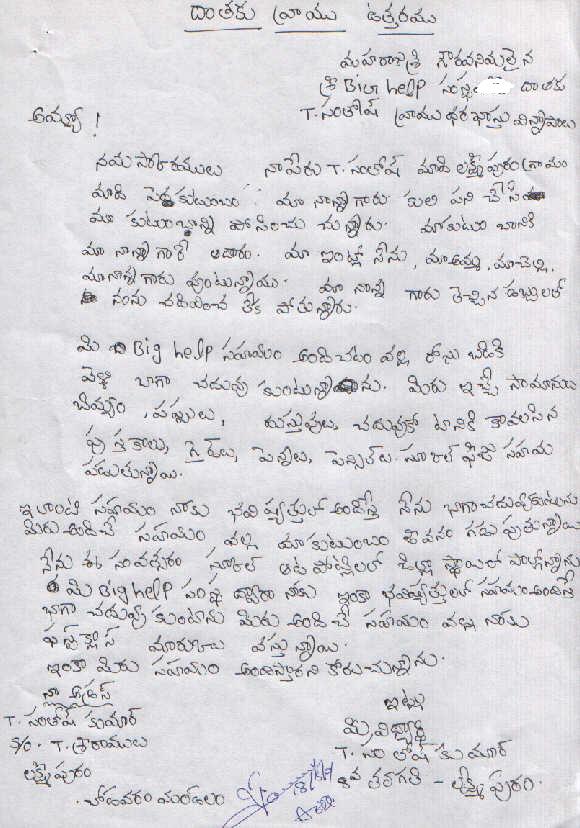 దాతకు వ్రాయు ఉత్తరము
మహరాజశ్రీ గౌరవనియులైన
శ్రీ Big help సంస్థ దాతకు
T. సంతోష్ వ్రాయు ధరఖాస్తు విన్నపాలు
అయ్యా !
నమస్కారములు నాపేరు T. సంతోష్ మాది లక్ష్మీపురం గ్రామం
మాది పెద్ద కుటుంబం. మా నాన్నగారు కులి పని చేసి
మా కుటుంబాన్ని పోసించు చున్నారు. మాకుటుంబానికి
మా నాన్న గారే ఆదారం. మా ఇంట్లో నేను, మాఅమ్మ, మాచెల్లి,
మానాన్న గారు వుంటున్నాము. మా నాన్న గారు తెచ్చిన డబ్బులతో
నన్ను చదివించ లేక పోతున్నారు.
మి Big help సహయం అందించటం వల్ల రోజు బడికి
వెళ్ళి బాగా చదువు కుంటున్నాను. మిరు ఇచ్చే సామానులు
బియ్యం, పప్పులు, దుస్తువులు, చదువుకో టానికి కావలసిన
పుస్తకాలు, పెన్నులు, పెన్సిల్లు. స్కూల్ ఫిజు సహయ
పడుతున్నాయి.
ఇలాంటి సహయం నాకు భవిష్యత్తులో అందిస్తే నేను బాగా చదువుకుంటును
మిరు అందించే సహయం వల్ల మాకుటుంబం జీవనం గడుపుతున్నాము
నేను ఈ సంవత్సరం స్కూల్ ఆట పోటిలలో జిల్లా స్థాయిలో పాల్గొన్నాను
మి Big help సంస్థ ద్వారా నాకు ఇంకా భవిష్యత్తులో సహయం అందితే
బాగా చదువు కుంటాను మిరు అందించే సహయం వల్ల నాకు
ఫస్ట్ క్లాస్ మారుకులు వస్తున్నాయి.
ఇంకా మిరు సహయం అందిస్తారని కోరుచున్నాను.
నా అడ్రస్
T. సంతోష్ కుమార్
S/o. T. శ్రీరాములు
లక్ష్మీపురం
చోడవరం మండలం
ఇట్లు
మి విద్యార్థి
T. సంతోష్ కుమార్
8వ తరగతి - లక్ష్మీపురం.